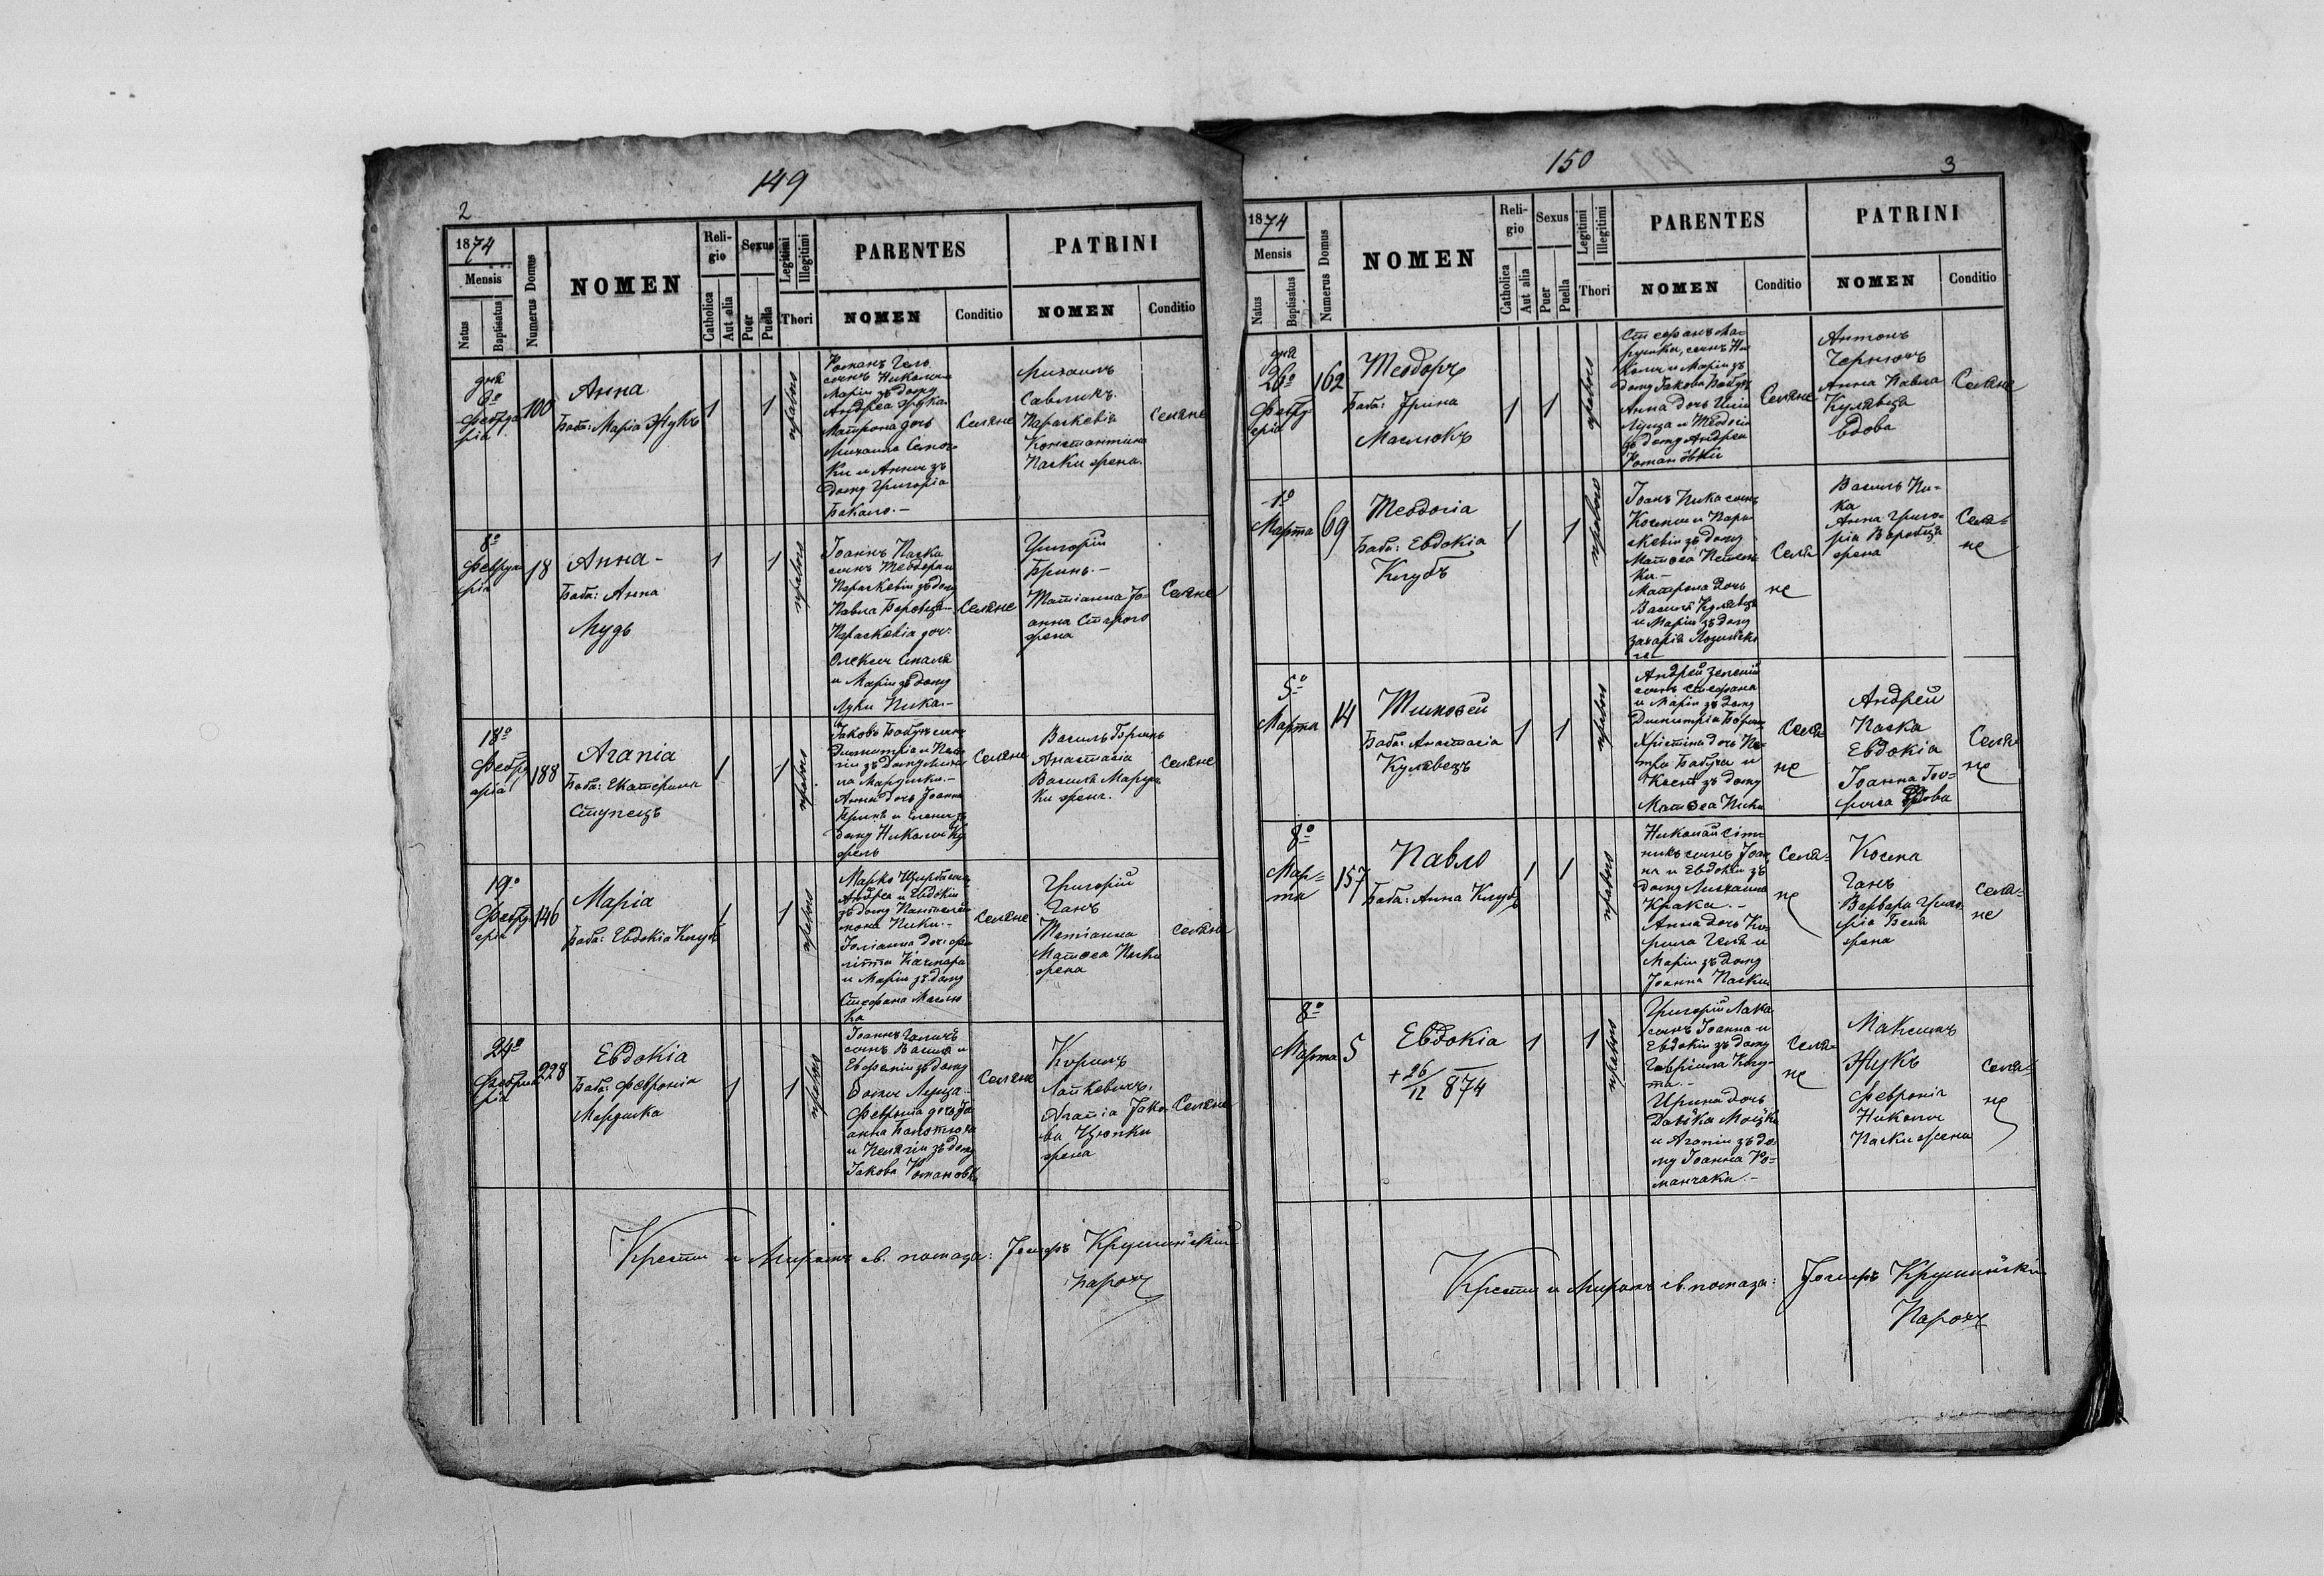 149
2
1874
Mensis
Natus
Baptisatus
Numerus Domus
NOMEN
Religio
Catholica
Aut alia
Sexus
Puer
Puella
Legitimi
Illegitimi
Thori
PARENTES
NOMEN
Conditio
PATRINI
NOMEN
Conditio
дня
6º
Февруа
рія
100
Анна
Баба: Марія Жукъ
1
1
правого
Романъ Гель
сынъ Николы и
Маріи зъ дому
Андрея
Матрона дочь
Михаила
ки и Анны зъ
дому Григорія
Бакало.-
Селяне
Михаилъ
Савликъ.
Параскевія
Константина
Паски жена.
Селяне
8º
Февруа
рія
18
Анна -
Баба: Анна
Мудь
1
1
правого
Іоаннъ Паска
сынъ Теодора и
Параскевіи зъ дому
Павла
Параскевія доч:
Олексы
и Маріи зъ дому
Луки Пика.-
Селяне
Григорій
Гринь.-
Татіанна Іо-
анна Старого
жена
Селяне
18º
Февру
арія
188
Агапія
Баба: Екатерина
Ступецъ
1
1
правого
Іаковъ Бабухъ сынъ
Димитрія и
гіи зъ дому
ла Мардички.-
Анна дочь Іоанна
Гринь и Елены зъ
дому Николы
Селяне
Василь Гринь
Анастасія
Василя
ки жена.
Селяне
19º
Февру
арія
146
Марія
Баба: Евдокія Клубъ
1
1
правого
Марко
Андрея и Евдокіи
зъ дому Пантелей
мона Пики.-
Іоліанна доч:
и Маріи зъ дому
Стефана Маслю
ка
Селяне
Григорій
Ганъ
Татіанна
Матѳеа Паски
жена
Селяне
24º
Февруа
рія
228
Евдокія
Баба: Февронія
Мардичка
1
1
правого
Іоаннъ
сынъ Василя и
Евфеміи зъ дому
Февронія дочь Іо
анна
и Пелагіи зъ дому
Іакова Романовки
Селяне
Кирилъ
Лапкевичъ.
Агапія Іако-
ва Цюпки
жена
Селяне
Крести и Миромъ св. помаза: Іосифъ Крушинскій
Парохъ
150
3
1874
Mensis
Natus
Baptisatus
Numerus Domus
NOMEN
Religio
Catholica
Aut alia
Sexus
Puer
Puella
Legitimi
Illegitimi
Thori
PARENTES
NOMEN
Conditio
PATRINI
NOMEN
Conditio
дня
26º
Февру
арія
162
Теодоръ
Баба: Ірина
Маслюкъ
1
1
правого
Стефанъ
рушка, сынъ Ни
колы и Маріи зъ
дому Іакова Бабуха
Анна дочь
и Теодосіи
зъ дому Андрея
Романовки
Селяне
Антонъ
Чернюхъ
Анна Павла
Кулявца
вдова
Селяне
1º
Марта
69
Теодосія
Баба: Евдокія
Клубъ
1
1
правого
Іоанъ Пика сынъ
Космы и Пара-
скевіи зъ дому
Матѳеа
ки.-
Матрона дочь
Василя Кулявца
и Маріи зъ дому
Захарія Лозинско
го
Селя
не
Василь Пи-
ка
Анна Григо-
рія Воробца
жена
Селя-
не
5º
Марта
14
Тимоѳей
Баба: Анастасія
Кулявецъ
1
1
правого
Андрей Зеленій
сынъ Стефана
и Маріи зъ дому
Димитрія
Христина дочь Пе-
тра Бабуха и
Ксеніи зъ дому
Матѳеа Пики
Селя-
не
Андрей
Паска
Евдокія
Іоанна Гов-
вдова
Селя-
не
8º
Мар-
та
157
Павло
Баба: Анна Клубъ
1
1
правого
Николай Сіт-
никъ сынъ Іоан
на и Евдокіи зъ
дому Михаила
Крака.-
Анна дочь Ки-
рила Геля и
Маріи зъ дому
Іоанна Паски
Селя-
не
Косма
Ганъ
Варвара Григо-
рія
жена
Селя-
не
8º
Марта
5
Евдокія
+ 26/12 874
1
1
правого
Григорій Лака
сынъ Іоанна и
Евдокіи зъ дому
Гавріила
та.-
Ирина дочь
Давіда
и Агапіи зъ до-
му Іоанна Ро-
манчаки.-
Селя-
не
Максимъ
Жукъ
Февронія
Николы
Паски жена
Селя-
не
Крести и Миромъ св. помаза: Іосифъ Крушинскій
Парохъ